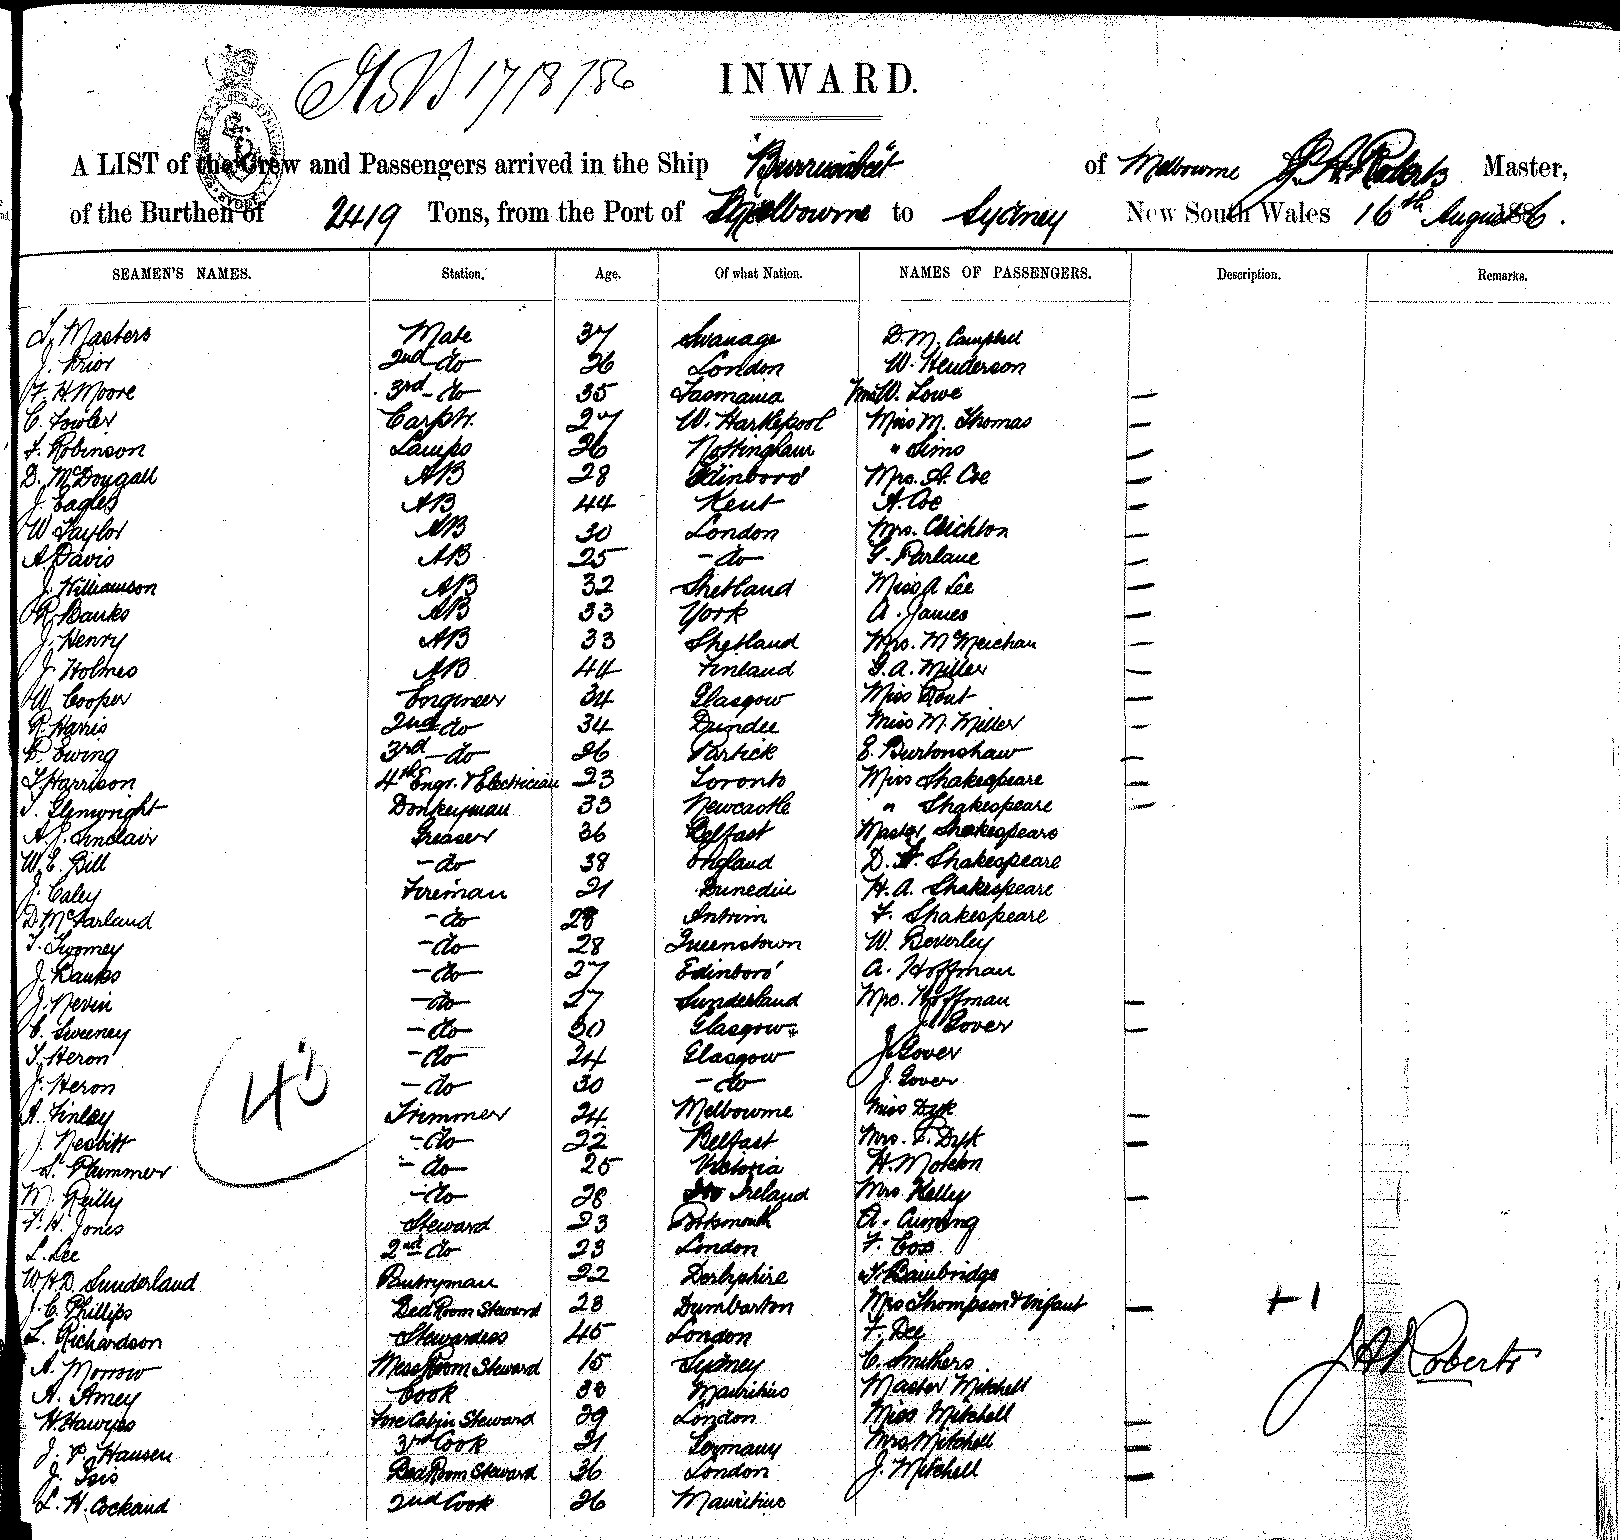 17/8/86
INWARD.
A LIST of the Crew and Passengers arrived in the Ship "Burrumbeet" of Melbourne J. A. Roberts Master,
of the Burthen of 2419 Tons, from the Port of Melbourne to Sydney New South Wales 16th August 1886.
SEAMEN'S NAMES. Station. Age. Of what Nation. NAMES OF PASSENGERS. Description. Remarks.
Masters Mate 37 Swanage D. M. Campbell
J. Prior 2nd do 26 London W. Henderson
F. H. Moore 3rd do 35 Tasmania W. Lowe —
C. Fowler Carptr. 27 W. Hartlepool Miss M. Thomas —
F. Robinson Lamps 26 Nottingham " Sims —
D. McDougall AB 28 Edinboro' Mrs. A. Coe —
J. Eagles AB 44 Kent A. Coe —
W Taylor AB 30 London Mrs. Crichton —
A. Davis AB 25 - do - G. Parlane —
J. Williamson AB 32 Shetland Miss A Lee —
R. Banks AB 33 York A. James —
J. Henry AB 33 Shetland Mrs. McMeichan —
J. Holmes AB 44 Finland G. A. Miller —
W. Cooper Engineer 34 Glasgow Miss Rout —
R. Harris 2nd do 34 Dundee Miss M. Miller —
Ewing 3rd do 26 Partick E. Burtonshaw —
Harrison 4th Engr. & Electrician 23 Toronto Miss Shakespeare —
T. Glenwright Donkeyman 33 Newcastle " Shakespeare —
A. J. Sinclair Greaser 36 Belfast Master Shakespeare
W. E. Gill - do 38 England D. H. Shakespeare
J. Caley Fireman 21 Dunedin H. A. Shakespeare
D. McFarland - do 28 Antrim F. Shakespeare
T. Twomey - do 28 Queenstown W. Beverley
J. Banks - do 27 Edinboro' A. Hoffman
J. Nevin - do 27 Sunderland Mrs. Hoffman —
C. Sweeney - do 30 Glasgow J. Gover —
T. Heron - do 24 Glasgow J. Gover
J. Heron - do 30 - do J. Gover
A. Finlay Trimmer 24 Melbourne Miss Dyk —
J. Nesbitt - do 22 Belfast Mrs. F. Dyk —
Plummer - do 25 Victoria H. Moldon
M. Reilly - do 28 Ireland Mrs Kelly —
F. H. Jones Steward 23 Portsmouth A. Cuming
L. Lee 2nd do 23 London F. Cox
W H D Sunderland Pantryman 22 Derbyshire Bainbridge
J. C. Phillips Bed Room Steward 28 Dumbarton Mrs Thompson & Infant — +1
L. Richardson Stewardess 45 London F. Dee
A. Morrow Mess Room Steward 15 Sydney C. Smithers
A. Amey Cook 38 Mauritius Master Mitchell
H. Hawyes Fore Cabin Steward 29 London Miss Mitchell —
J. P. Hansen 3rd Cook 21 Germany Mrs Mitchell —
J. Isis Bed Room Steward 36 London J. Mitchell —
L. H. Cockand 2nd Cook 26 Mauritius
J. A. Roberts